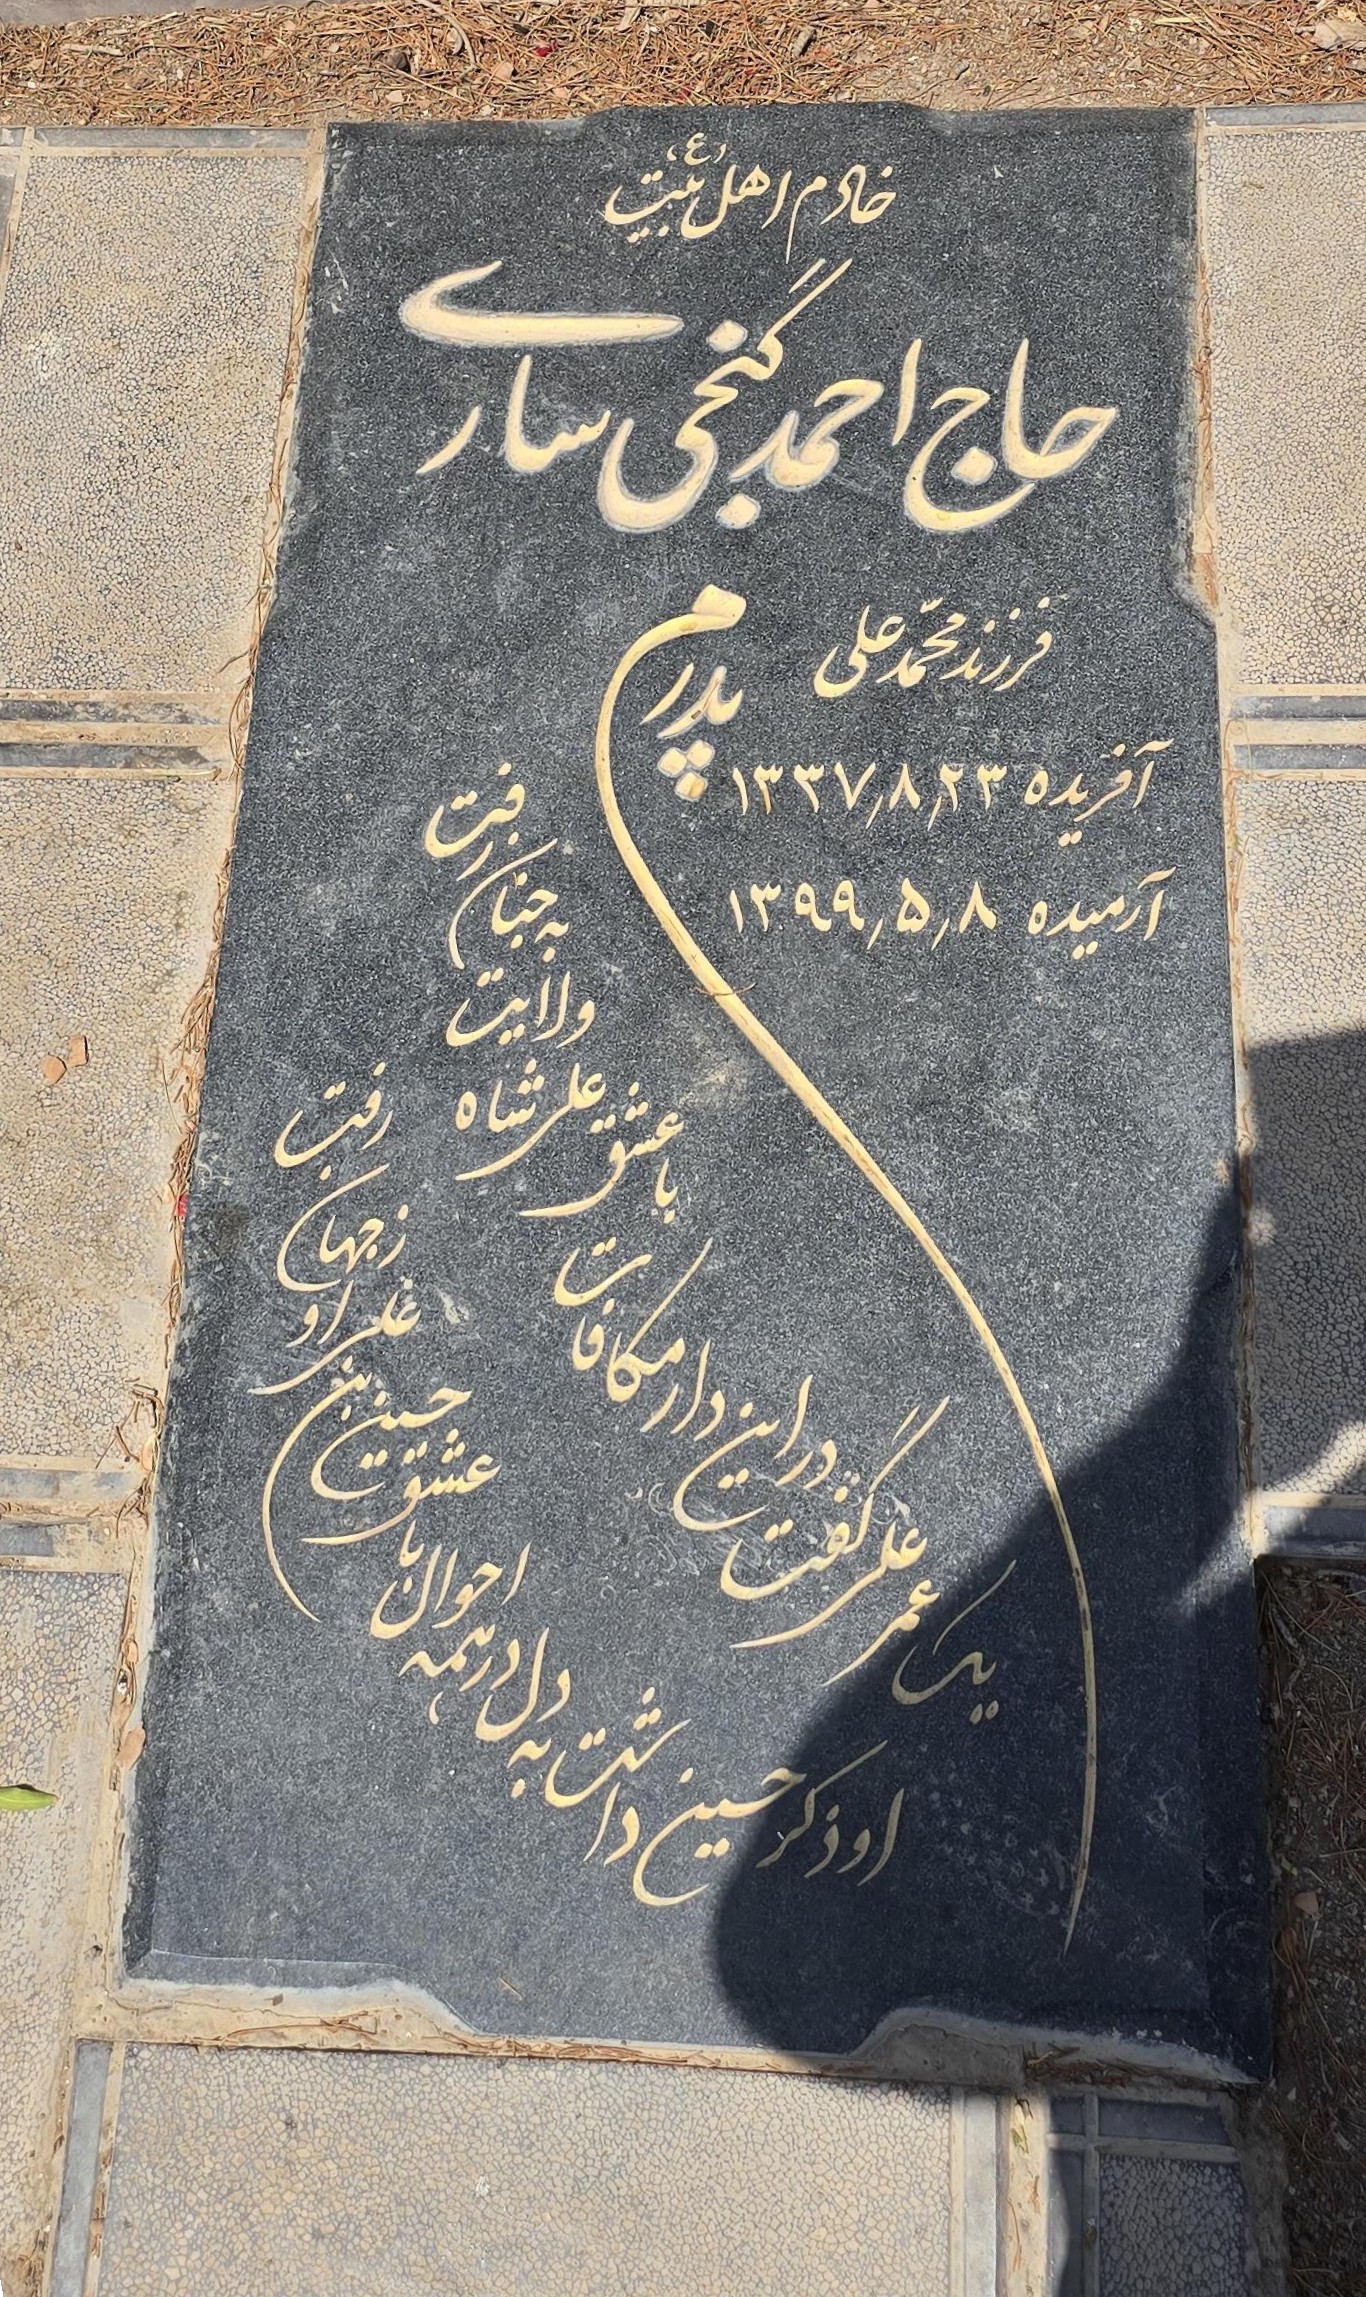 خادم اهل بیت (ع)
حاج احمد گنجی سارے
فرزند محمّدعلی
آفریده ۱۳۳۷٫۸٫۲۳
آرمیده ۱۳۹۹٫۵٫۸
پدرم
یک عمر علی گفت در این دار مکافات
با عشق علی شاه ولاایت به جنان رفت
او ذکر حسین داشت به دل در همه احوال
با عشق حسین بن علی او ز جهان رفت